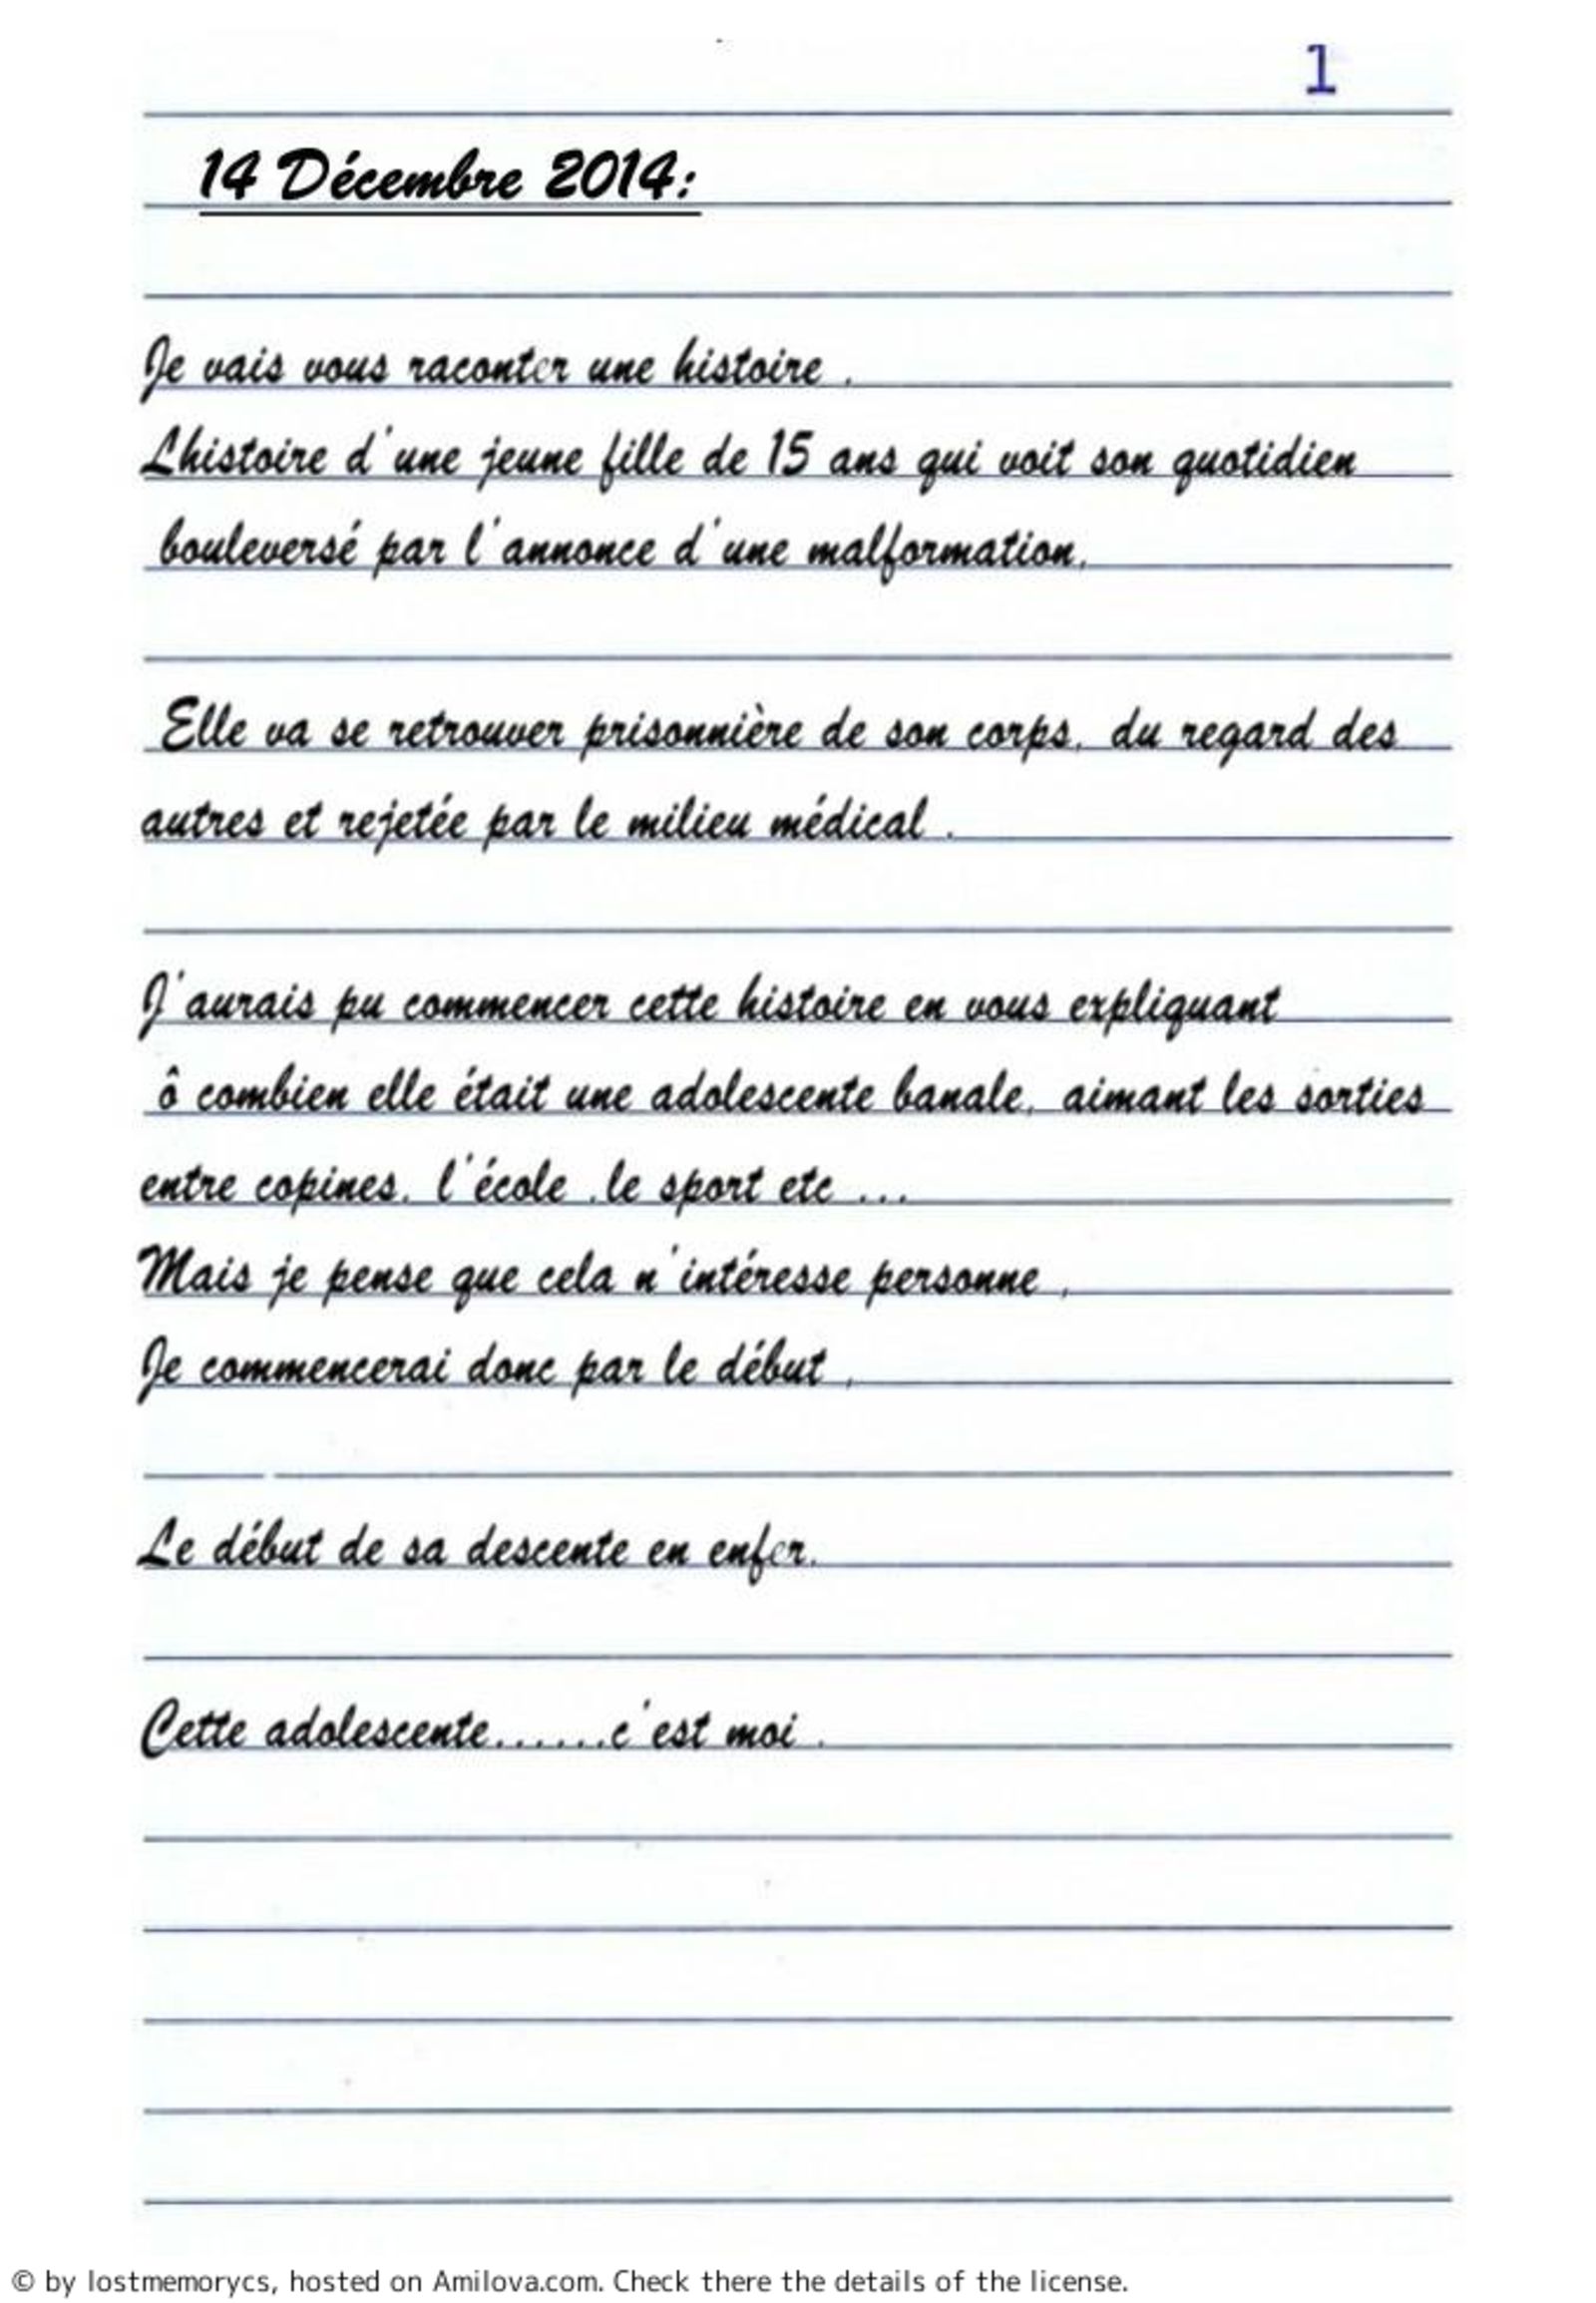 1
14 Décembre 2014:
Je vais vous raconter une histoire .
Lhistoire d'une jeune fille de 15 ans qui voit son quotidien
bouleversé par l'annonce d'une malformation.
Elle va se retrouver prisonnière de son corps, du regard des
autres et rejetée par le milieu médical .
J'aurais pu commencer cette histoire en vous expliquant
ô combien elle était une adolescente banale, aimant les sorties
entre copines, l'école ,le sport etc ...
Mais je pense que cela n'intéresse personne ,
Je commencerai donc par le début ,
Le début de sa descente en enfer.
Cette adolescente......c'est moi .
© by lostmemorycs, hosted on Amilova.com. Check there the details of the license.